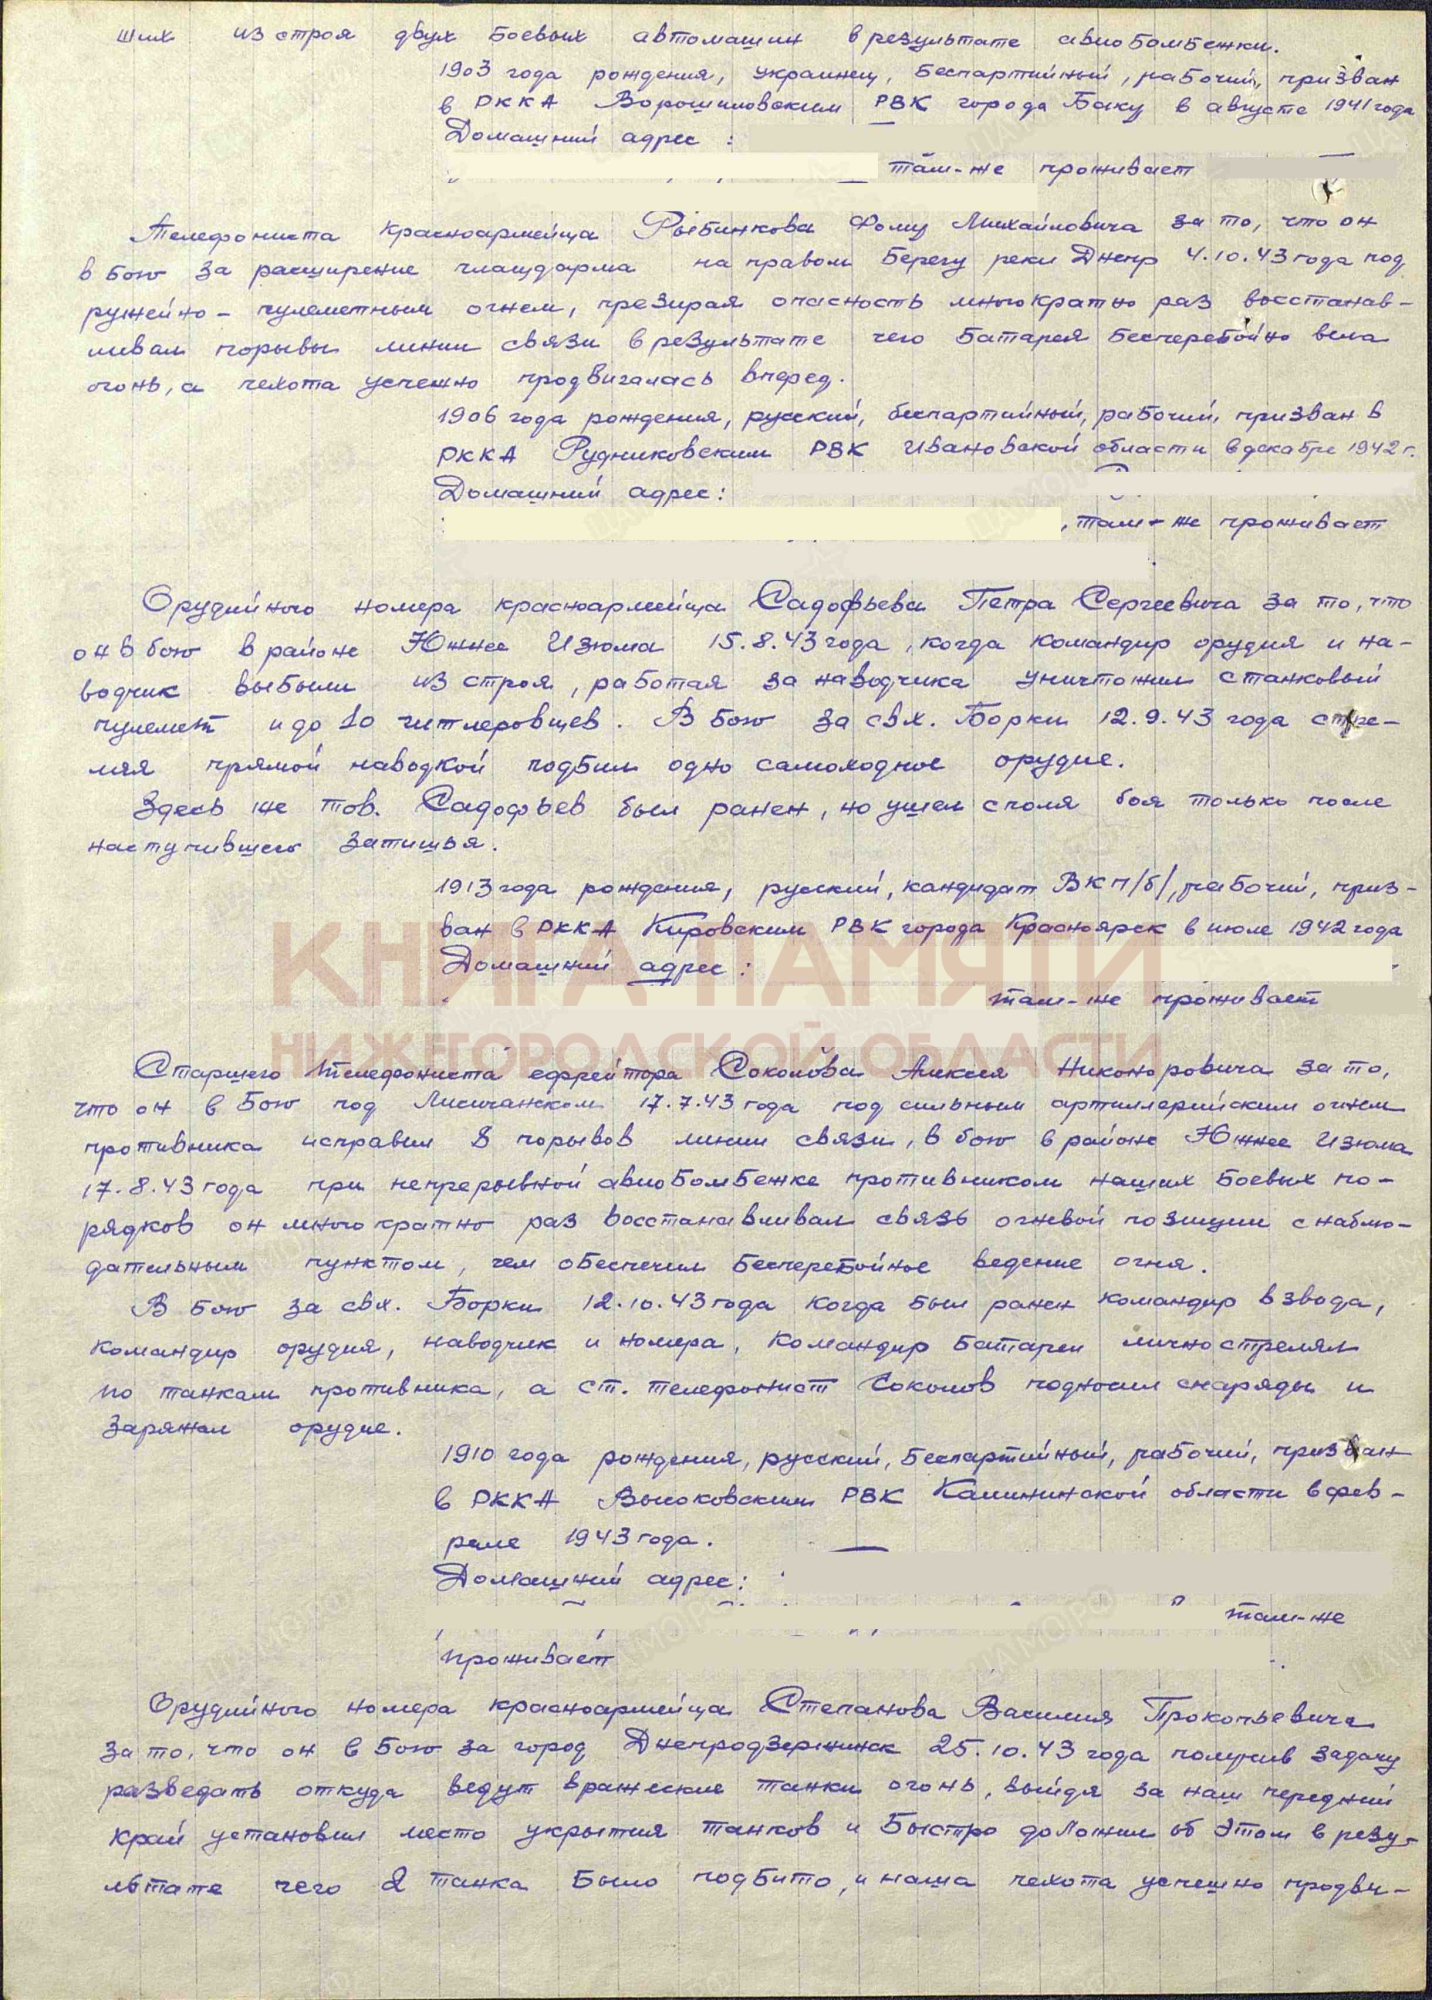 ших из строя двух боевых автомашин в результате авиобомбежки.
1903 года рождения, украинец, беспартийный, рабочий, призван
в РККА Ворошиловским РВК города Баку в августе 1941 года
Домашний адрес :
там-же проживает
Телефониста красноармейца Рыбинкова Фому Михайловича за то, что он
в бою за расширение плацдарма на правом берегу реки Днепр 4.10.43 года под
ружейно - пулеметным огнем, презирая опасность многократно раз восстанав-
ливал порывы линии связи в результате чего батарея бесперебойно вела
огонь, а пехота успешно продвигалась вперед.
1906 года рождения, русский, беспартийный, рабочий, призван в
РККА Рудниковским РВК Ивановской области в декабре 1942 г.
Домашний адрес:
, там-же проживает
Орудийного номера красноармейца Садофьева Петра Сергеевича за то, что
он в бою в районе Южнее Изюма 15.8.43 года, когда командир орудия и на-
водчик выбыли из строя, работая за наводчика уничтожил станковый
пулемет и до 10 гитлеровцев. В бою за свх. Борки 12.9.43 года стре-
ляя прямой наводкой подбил одно самоходное орудие.
Здесь же тов. Садофьев был ранен, но ушел с поля боя только после
наступившего затишья.
1913 года рождения, русский, кандидат ВКП/б/, рабочий, приз-
ван в РККА Кировским РВК города Красноярск в июле 1942 года
КНИГА ПАМЯТИ
Домашний адрес :
там-же проживает
НИЖЕГОРОДСКОЙ ОБЛАСТИ
Старшего телефониста ефрейтора Соколова Алексея Никоноровича за то,
что он в бою под Лисичанском 17.7.43 года под сильным артиллерийским огнем
противника исправил 8 порывов линии связи, в бою в районе Южнее Изюма
17.8.43 года при непрерывной авиобомбежке противником наших боевых по-
рядков он многократно раз восстанавливал связь огневой позиции с наблю-
дательным пунктом, чем обеспечил бесперебойное ведение огня.
В бою за свх. Борки 12.10.43 года когда был ранен командир взвода,
командир орудия, наводчик и номера, командир батареи лично стрелял
по танкам противника, а ст. телефонист Соколов подносил снаряды и
заряжал орудие.
1910 года рождения, русский, беспартийный, рабочий, призван
в РККА Высоковским РВК Калининской области в фев-
рале 1943 года.
Домашний адрес:
там-же
проживает
Орудийного номера красноармейца Степанова Василия Прокопьевича
за то, что он в бою за город Днепродзержинск 25.10.43 года получив задачу
разведать откуда ведут вражеские танки огонь, выйдя за наш передний
край установил место укрытия танков и быстро доложил об этом в резу-
льтате чего 2 танка было подбито, и наша пехота успешно продви-